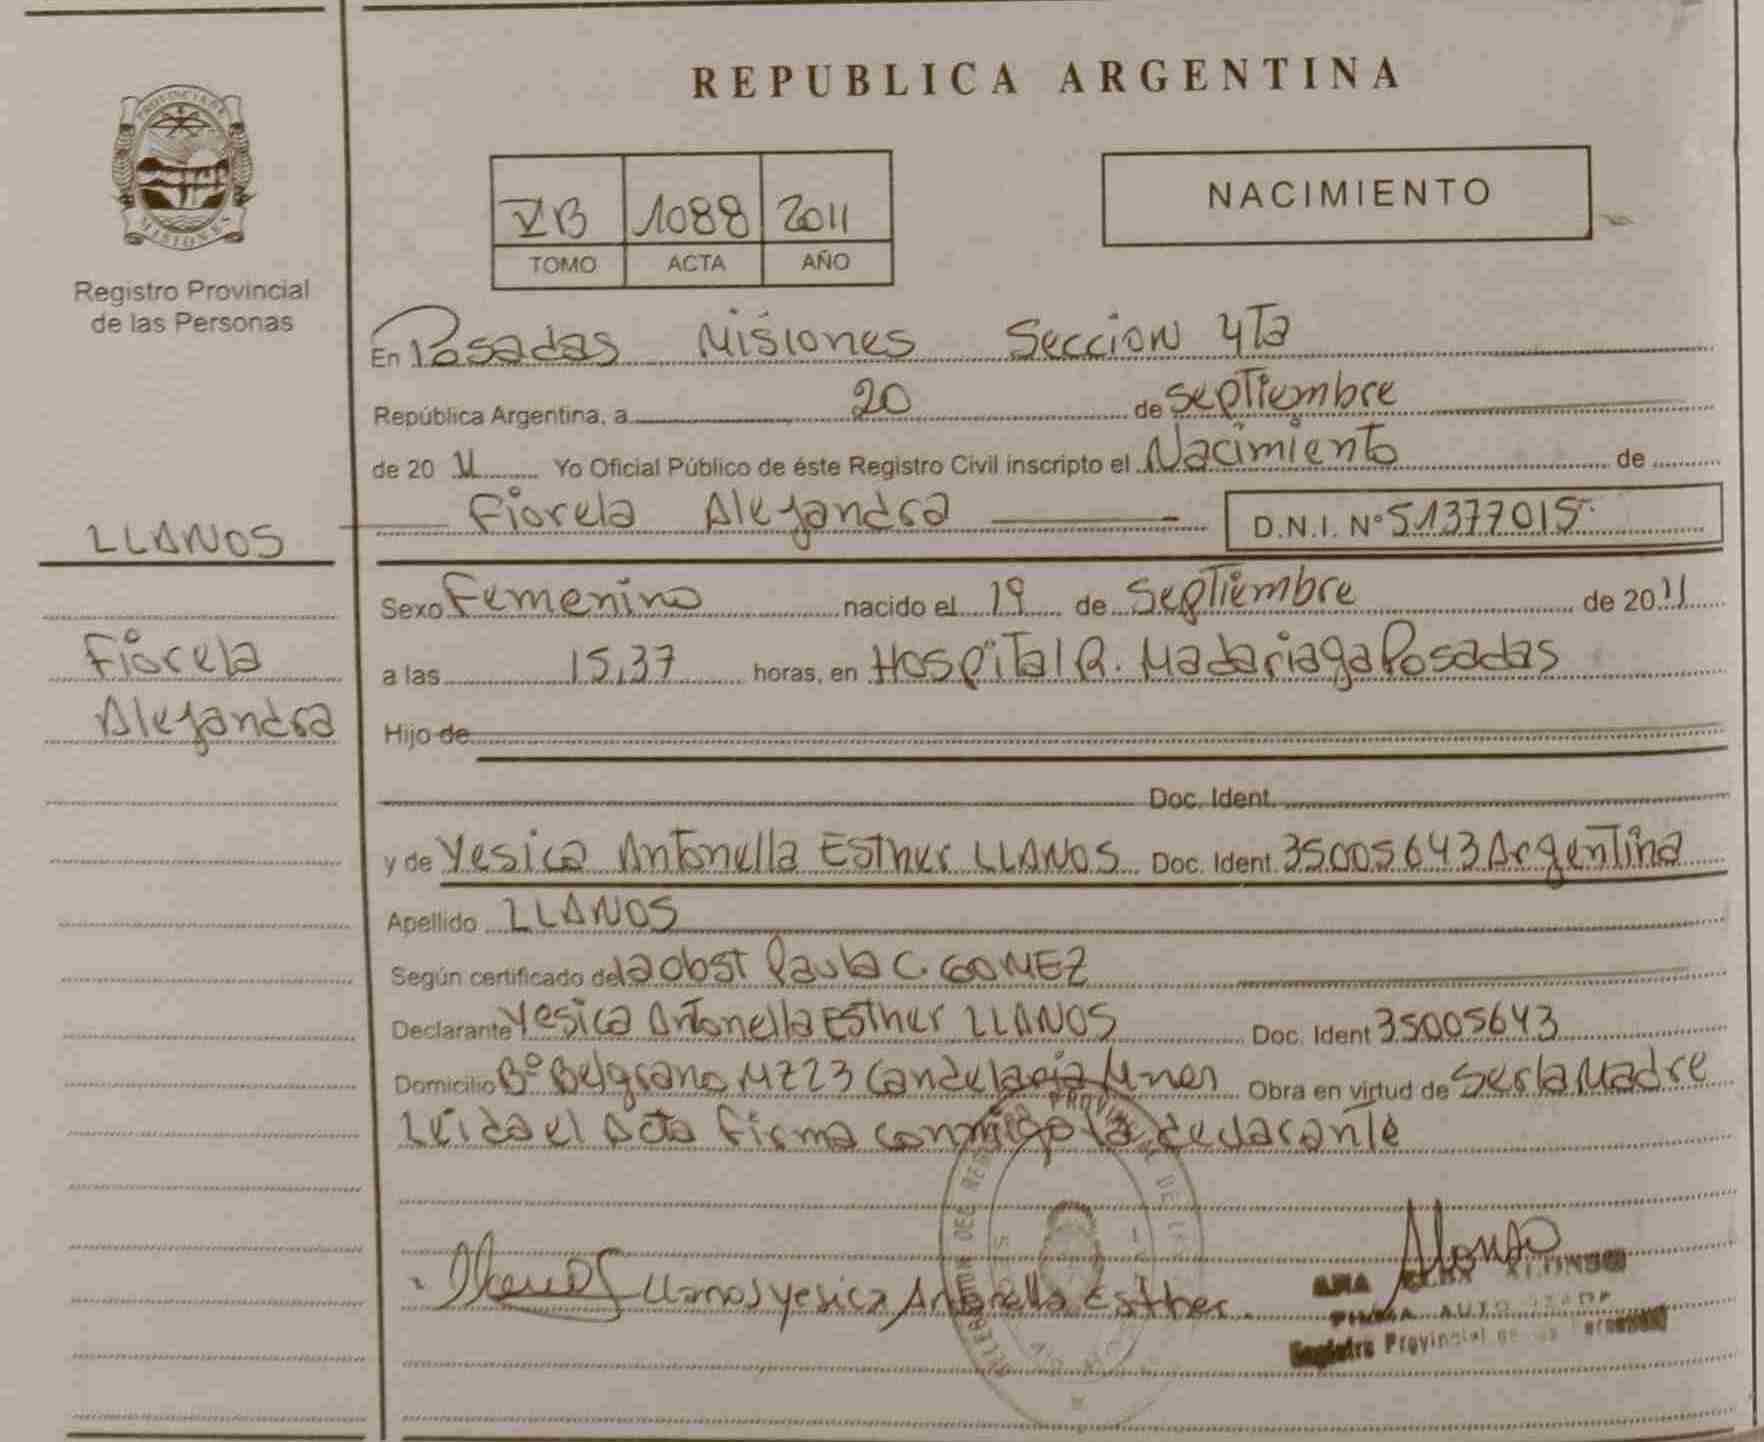 PROVINCIA DE
MISIONES
Registro Provincial
de las Personas
LLANOS
Fiorela
Alejandra
REPUBLICA ARGENTINA
VB 1088 2011
TOMO ACTA AÑO
NACIMIENTO
En Posadas Misiones Seccion 4Ta
República Argentina, a 20 de Septiembre
de 20 11 Yo Oficial Público de éste Registro Civil inscripto el Nacimiento de
Fiorela Alejandra D.N.I. N° 51377015
Sexo Femenino nacido el 19 de Septiembre de 20 11
a las 15,37 horas, en Hospital R. Madariaga Posadas
Hijo de
Doc. Ident.
y de Yesica Antonella Esther LLANOS Doc. Ident. 35005643 Argentina
Apellido LLANOS
Según certificado de la obst Paula C. GOMEZ
Declarante Yesica Antonella Esther LLANOS Doc. Ident 35005643
Domicilio B° Belgrano MZ23 Candelaria Mnes Obra en virtud de Ser la Madre
Leida el Acta firma conmigo la declarante
Llanos Yesica Antonella Esther.
Alonso
ANA ELBA ALONSO
FIRMA AUTORIZADA
Registro Provincial de las Personas